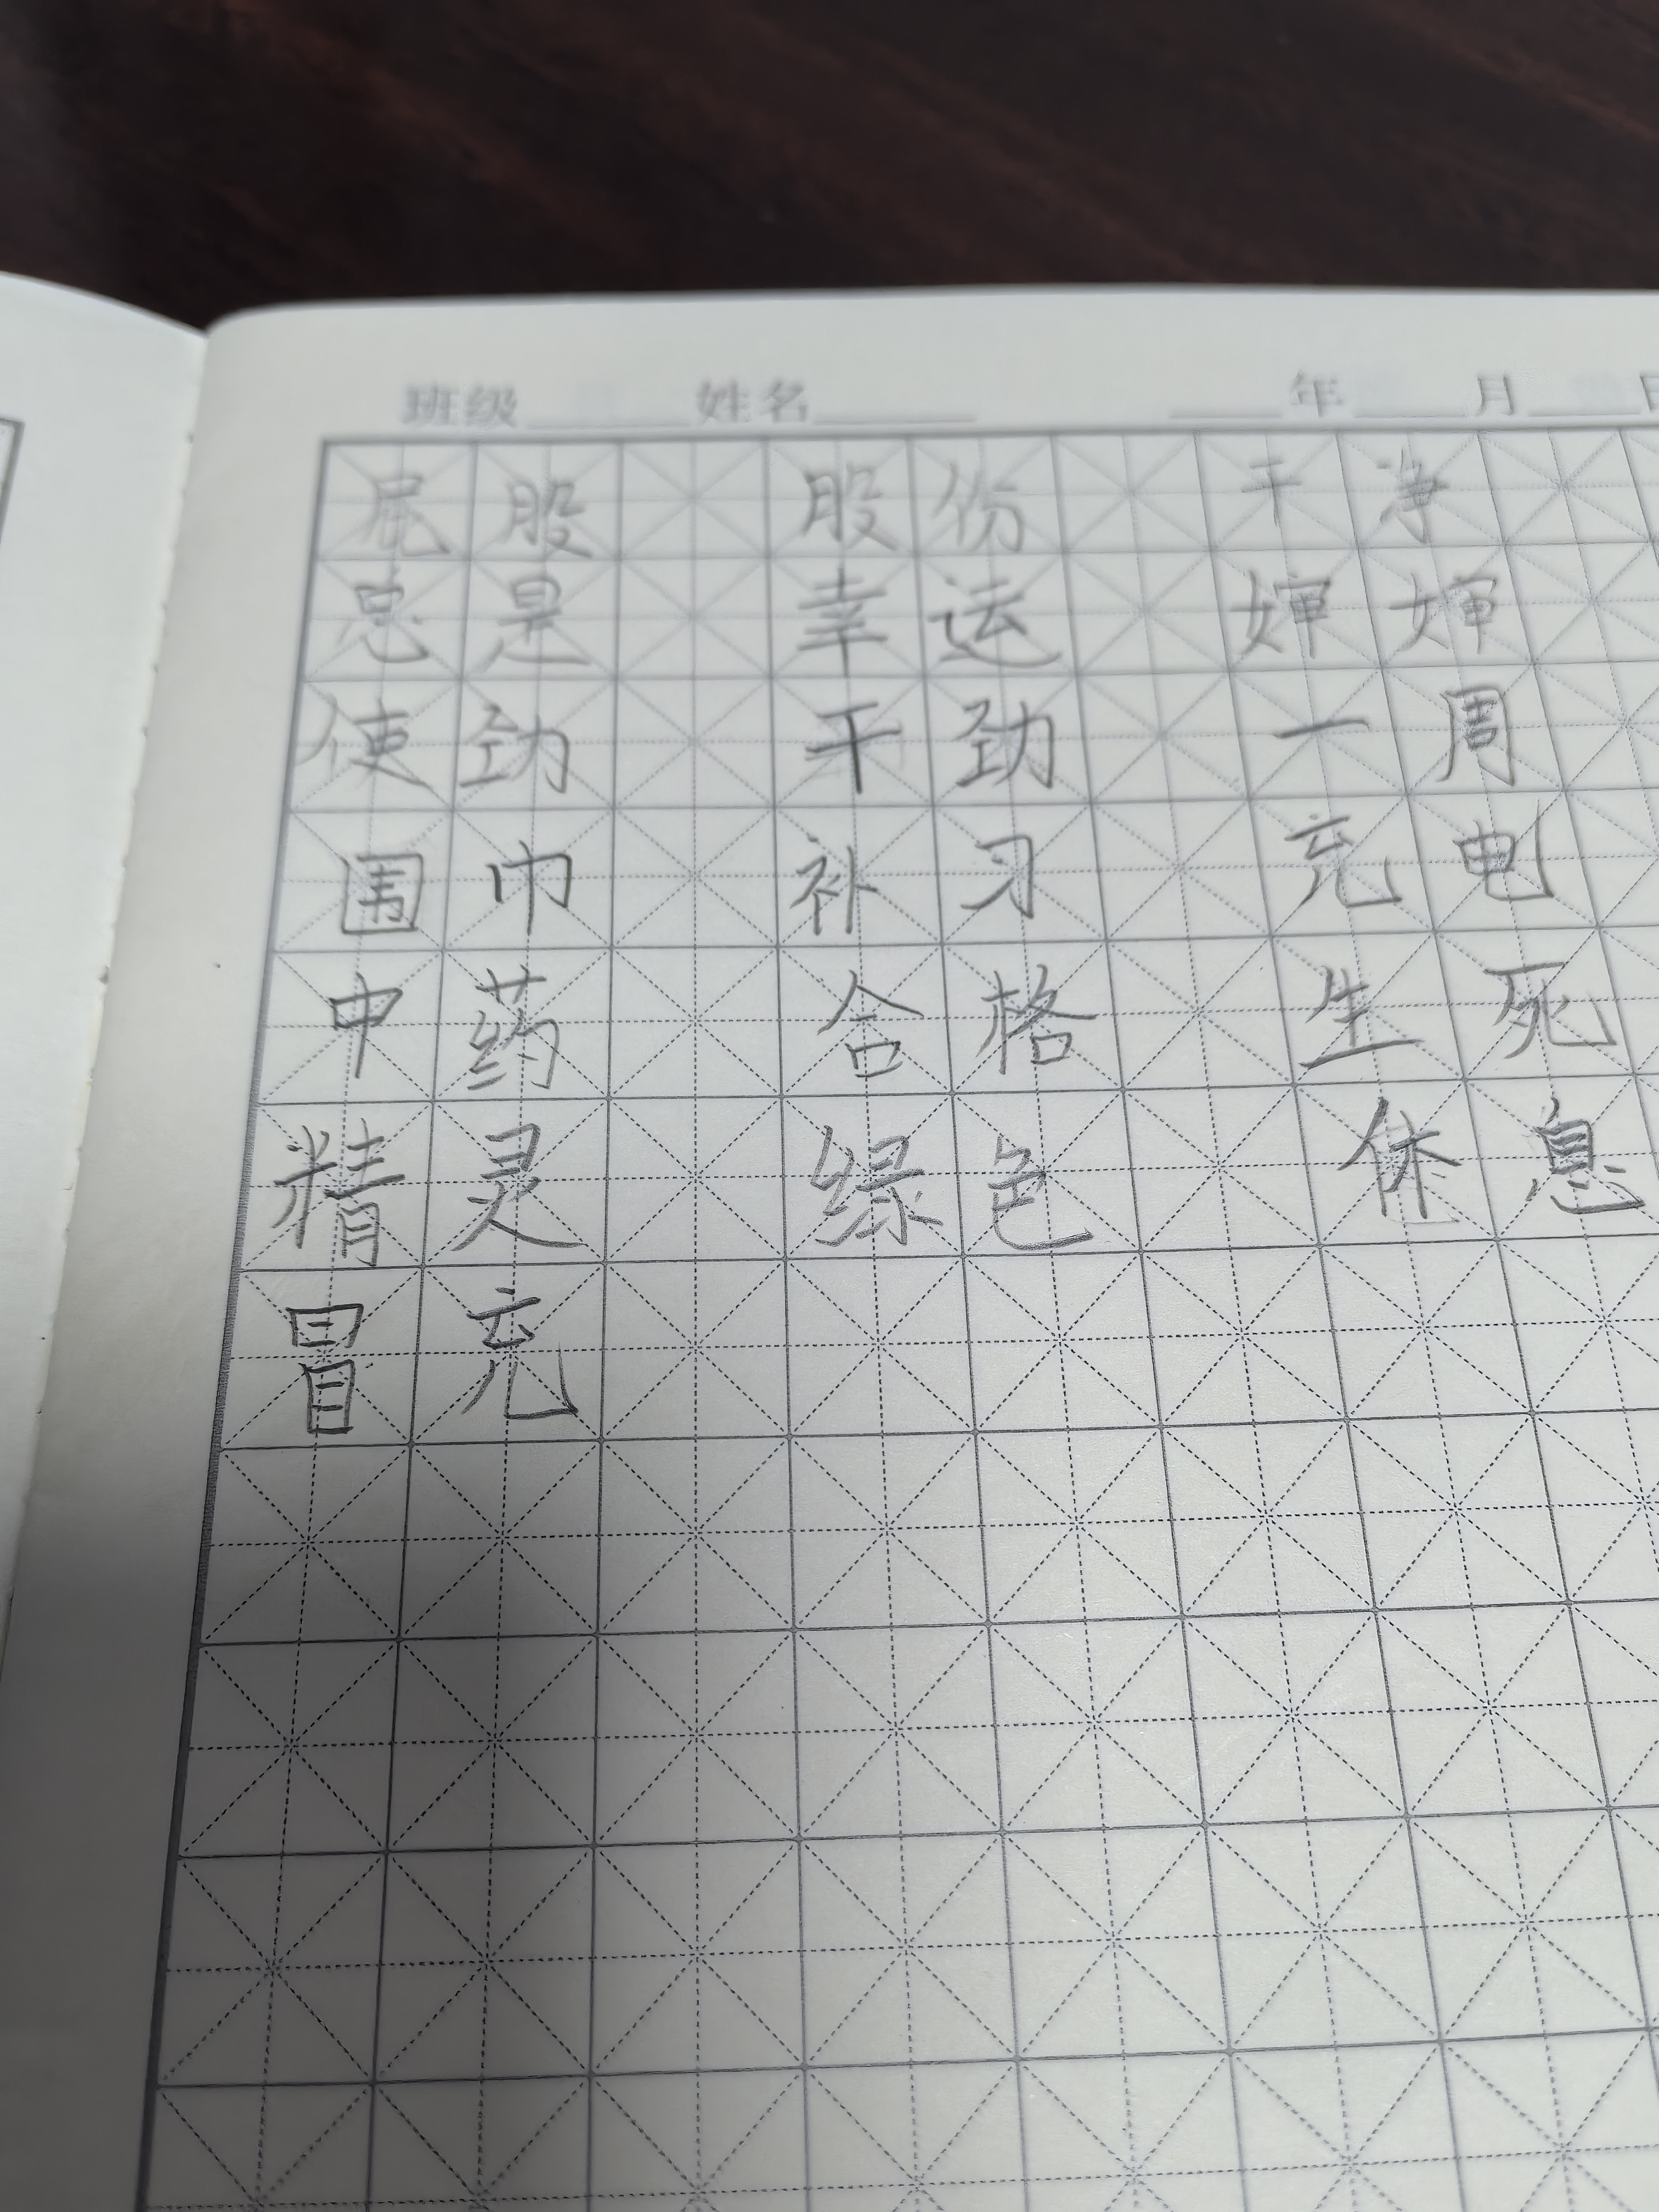 班级 姓名 年 月 日
屁股 股份 干净
总是 幸运 婶婶
使劲 干劲 一周
围巾 补习 充电
中药 合格 生死
精灵 绿色 休息
冒充